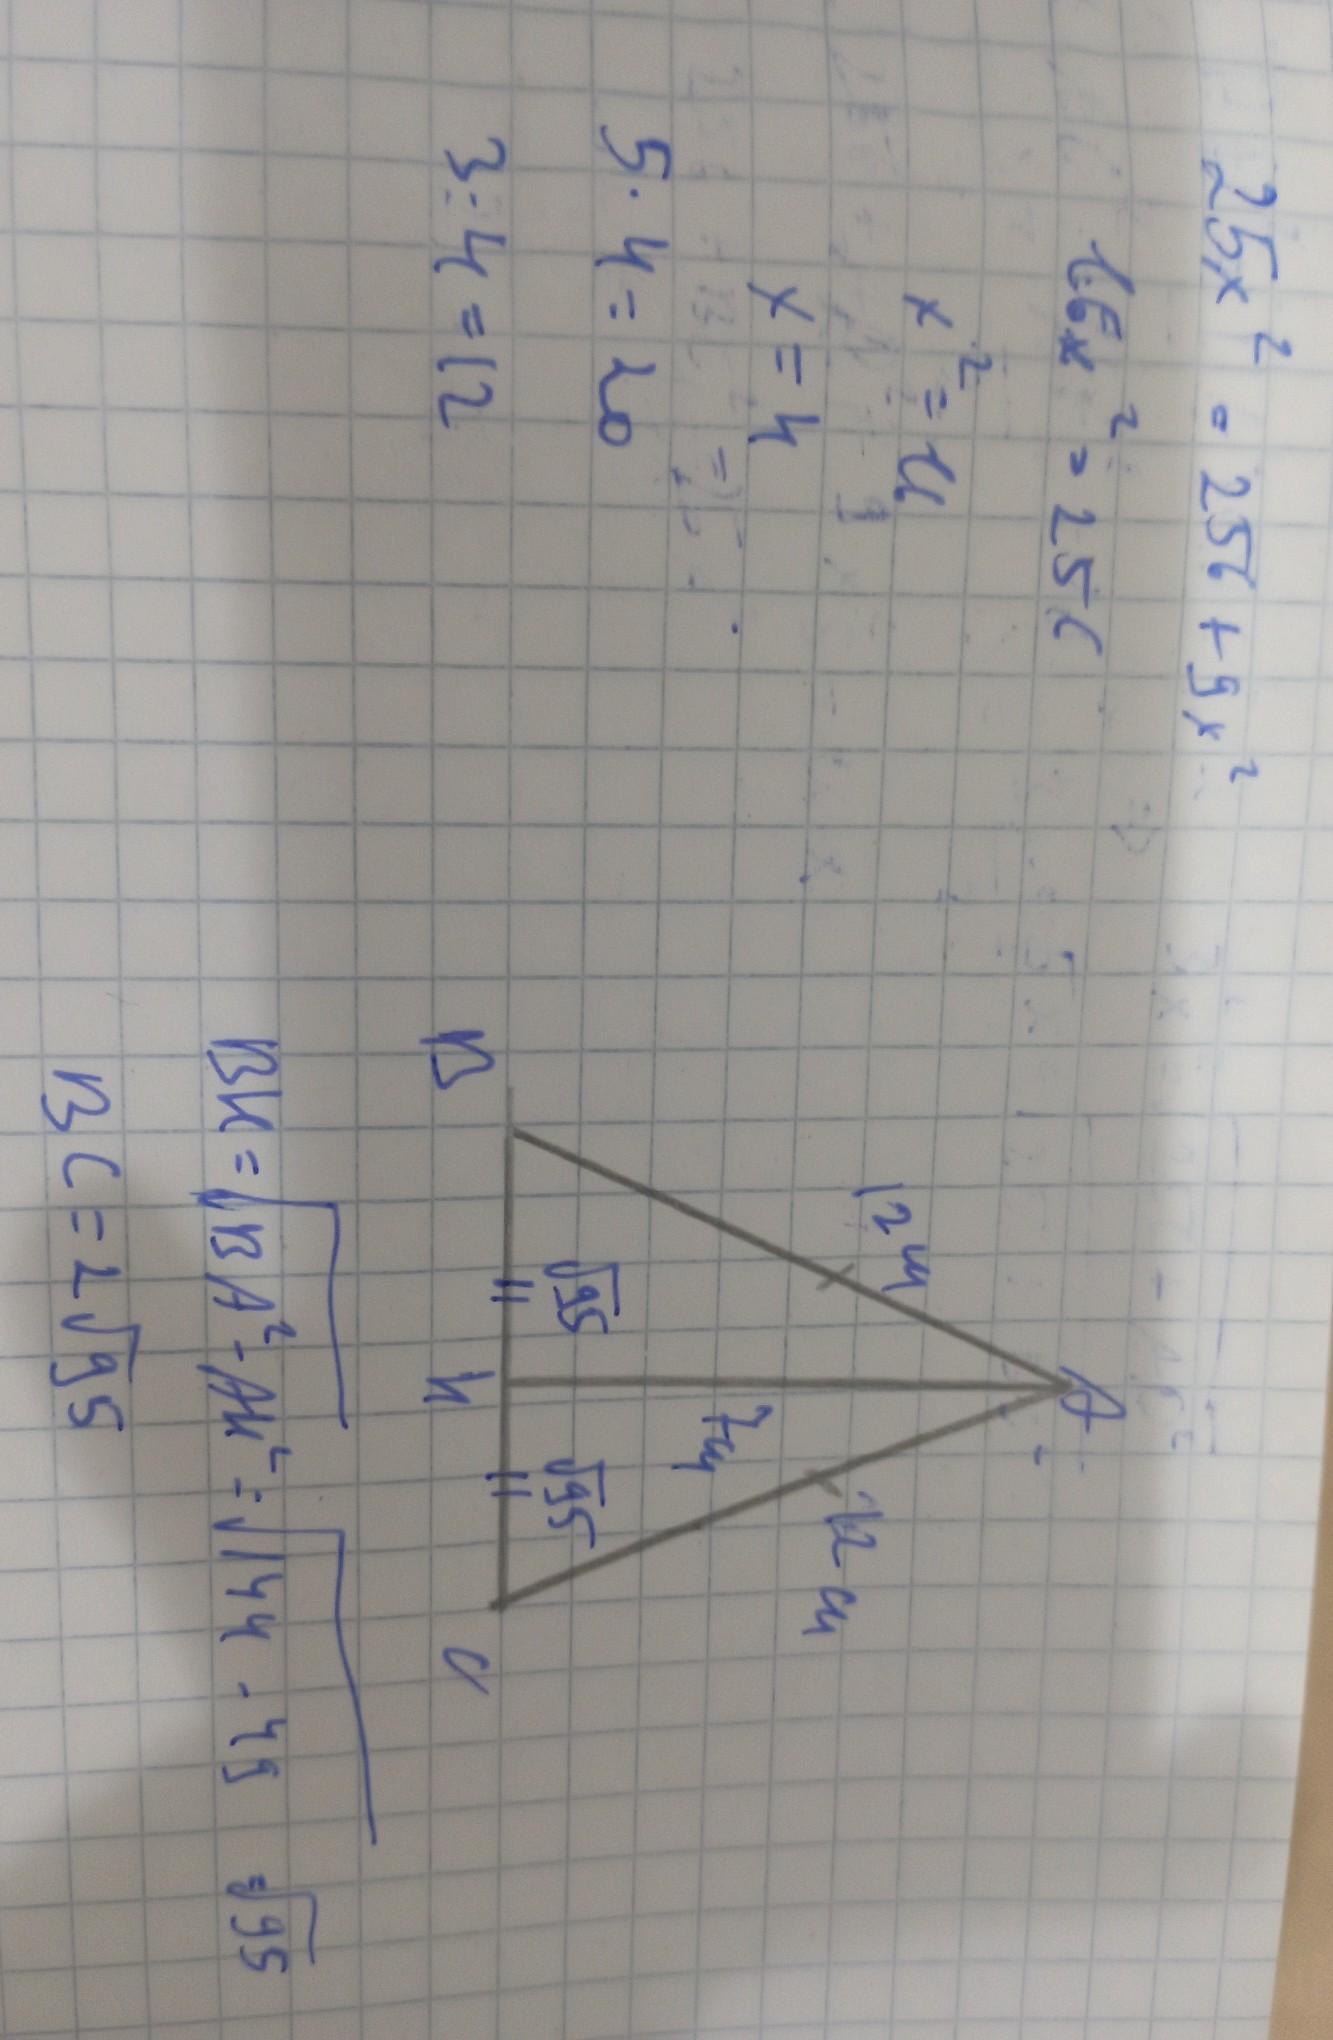 25x² = 256 + 9x²
16x² = 256
x² = 16
x = 4
5 · 4 = 20
3 · 4 = 12
A
12 см
12 см
7 см
√95
√95
B
H
C
BH = √BA² - AH² = √144 - 49 = √95
BC = 2√95